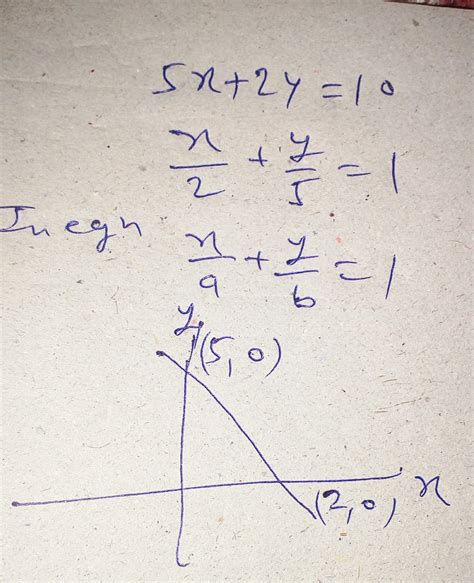 5x+2y=10
x/2 + y/5 = 1
In eqn x/a + y/b = 1
y
(5,0)
(2,0) x